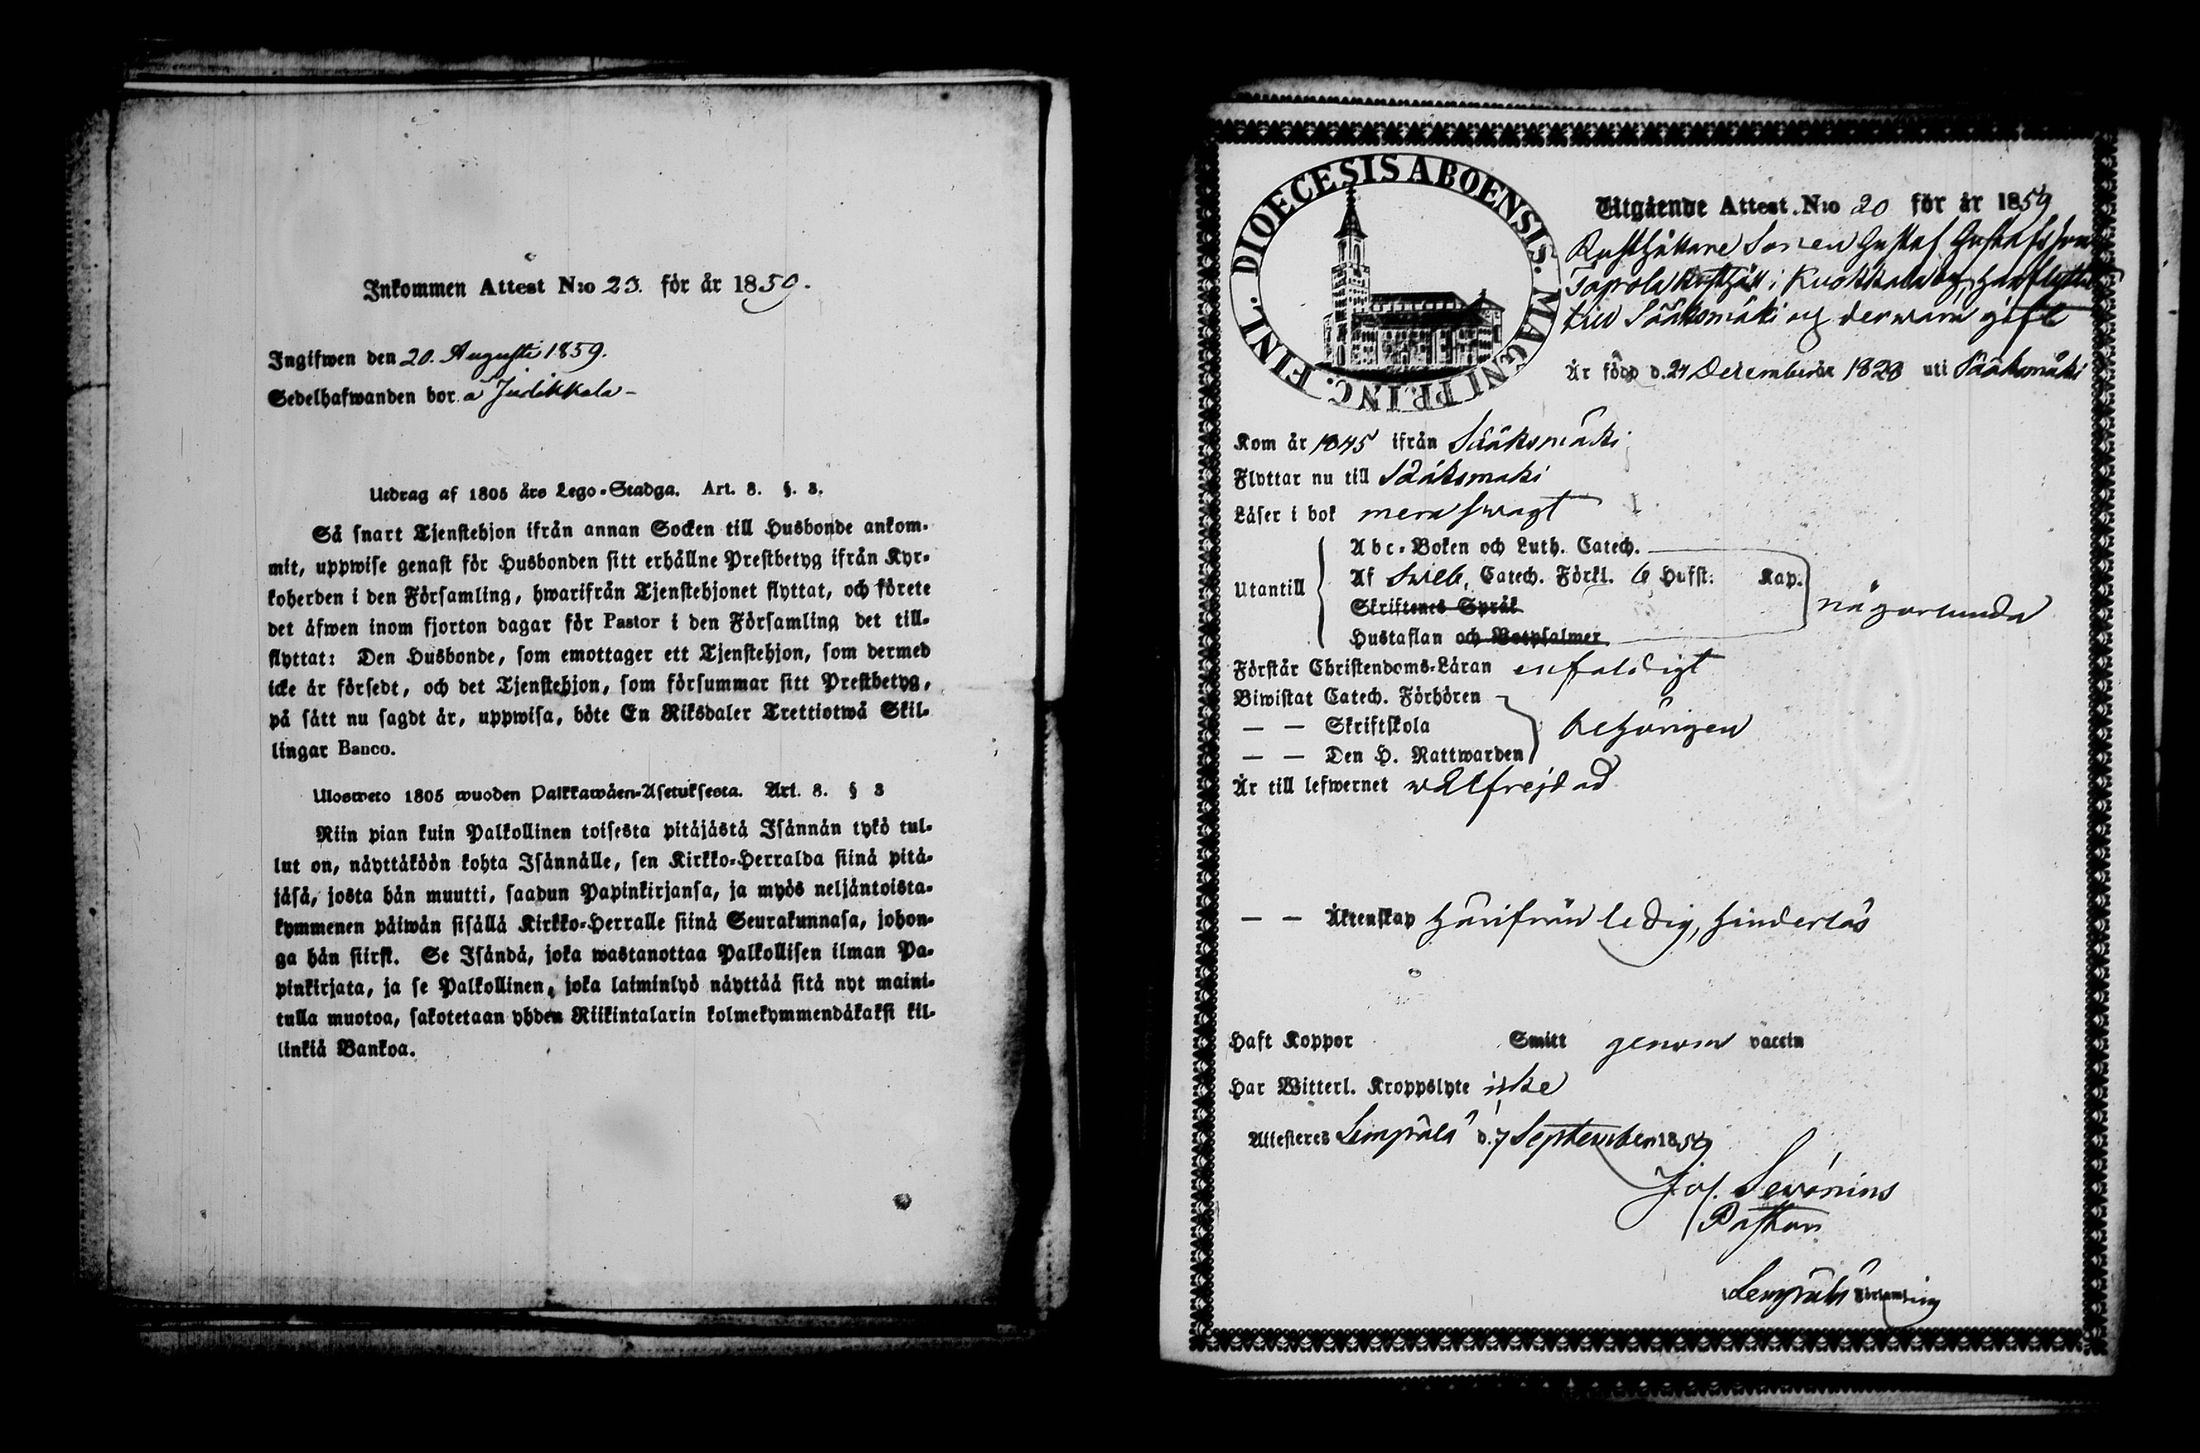 Inkommen Attest N:o 23. för år 1859.
Ingifwen den 20. Augusti 1859.
Sedelhafwanden bor å Judikkala -
Utdrag af 1805 års Lego-Stadga. Art. 8. §. 3.
Så snart Tjenstehjon ifrån annan Socken till Husbonde ankom-
mit, uppwise genast för Husbonden sitt erhållne Prestbetyg ifrån Kyr-
koherden i den Församling, hwarifrån Tjenstehjonet flyttat, och förete
det äfwen inom fjorton dagar för Pastor i den Församling det till-
flyttat: Den Husbonde, som emottager ett Tjenstehjon, som dermed
icke är försedt, och det Tjenstehjon, som försummar sitt Prestbetyg,
på sätt nu sagdt är, uppwisa, böte En Riksdaler Trettiotwå Skil-
lingar Banco.
Ulosweto 1805 wuoden Palkkawäen-Asetuksesta. Art. 8. § 3
Niin pian kuin Palkollinen toisesta pitäjästä Isännän tykö tul-
lut on, näyttäköön kohta Isännälle, sen Kirkko-Herralda siinä pitä-
jäsä, josta hän muutti, saadun Papinkirjansa, ja myös neljäntoista-
kymmenen päiwän sisällä Kirkko-Herralle siinä Seurakunnasa, johon-
ga hän siirst. Se Isändä, joka wastanottaa Palkollisen ilman Pa-
pinkirjata, ja se Palkollinen, joka laiminlyö näyttää sitä nyt maini-
tulla muotoa, sakotetaan yhden Riikintalarin kolmekymmendäkaksi kil-
linkiä Bankoa.
DIOECESIS ABOENSIS. MAGNI PRINC. FINL.
Utgående Attest. N:o 20 för år 1859
Rusthållare Sonen Gustaf Gustafsson
Tapola Rusthåll i Kuokkala by, har flyttat
till Sääksmäki och derwarn gift
Är född d. 21 December år 1828 uti Sääksmäki
Kom år 1845 ifrån Sääksmäki
Flyttar nu till Sääksmäki
Läser i bok mera swagt
Utantill
Abc-Boken och Luth. Catech.
Af Sweb. Catech. Förkl. 6 Hufst: Kap.
Skriftenes Språk
Hustaflan och Botpsalmer
någorlunda
Förstår Christendoms-Läran enfaldigt
Biwistat Catech. Förhören
— — Skriftskola
— — Den H. Nattwarden
behörigen
Är till lefwernet wälfrejdad
— — Äktenskap härifrån ledig, hinderlös
Haft Koppor Smitt genom vaccin
Har Witterl. Kroppslyte icke
Attesteres Lempälä d. 7 September 1859
Jos. Sevónius
Pastor
Lempälä Församling